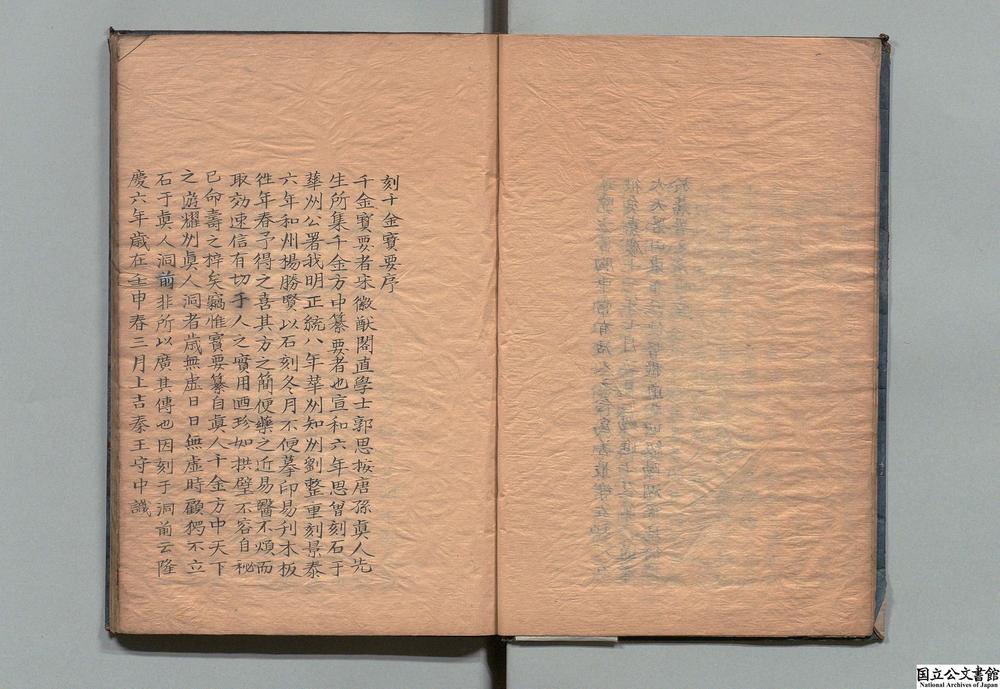 刻千金寶要序
千金寶要者宋徽猷閣直學士郭思按唐孫眞人先
生所集千金方中纂要者也宣和六年思曾刻石于
華州公署我明正統八年華州知州劉整重刻景泰
六年和州楊勝賢以石刻冬月不便摹印易刋木板
徃年春予得之喜其方之簡便藥之近易醫不煩而
取効速信有切于人之實用廼珍如拱璧不容自秘
已命壽之梓矣竊惟寶要纂自眞人千金方中天下
之遊耀州眞人洞者歳無虛日日無虛時顧獨不立
石于眞人洞前非所以廣其傳也因刻于洞前云隆
慶六年歳在壬申春三月上吉秦王守中識
国立公文書館
National Archives of Japan